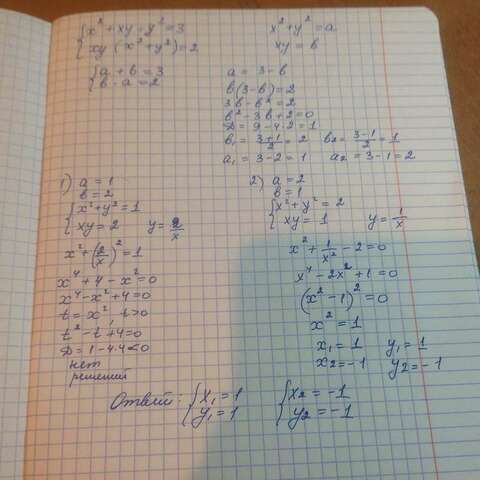 {x² + xy + y² = 3
xy (x² + y²) = 2
x² + y² = a
xy = b
{a + b = 3
b · a = 2
a = 3 - b
b(3 - b) = 2
3b - b² = 2
b² - 3b + 2 = 0
D = 9 - 4·2 = 1
b₁ = (3+1)/2 = 2 b₂ = (3-1)/2 = 1
a₁ = 3 - 2 = 1 a₂ = 3 - 1 = 2
1) a = 1
b = 2
{x² + y² = 1
xy = 2 y = 2/x
x² + (2/x)² = 1
x⁴ + 4 - x² = 0
x⁴ - x² + 4 = 0
t = x², t > 0
t² - t + 4 = 0
D = 1 - 4·4 < 0
нет
решений
2) a = 2
b = 1
{x² + y² = 2
xy = 1 y = 1/x
x² + 1/x² - 2 = 0
x⁴ - 2x² + 1 = 0
(x² - 1)² = 0
x² = 1
x₁ = 1 y₁ = 1
x₂ = -1 y₂ = -1
Ответ: {x₁ = 1 {x₂ = -1
y₁ = 1 y₂ = -1